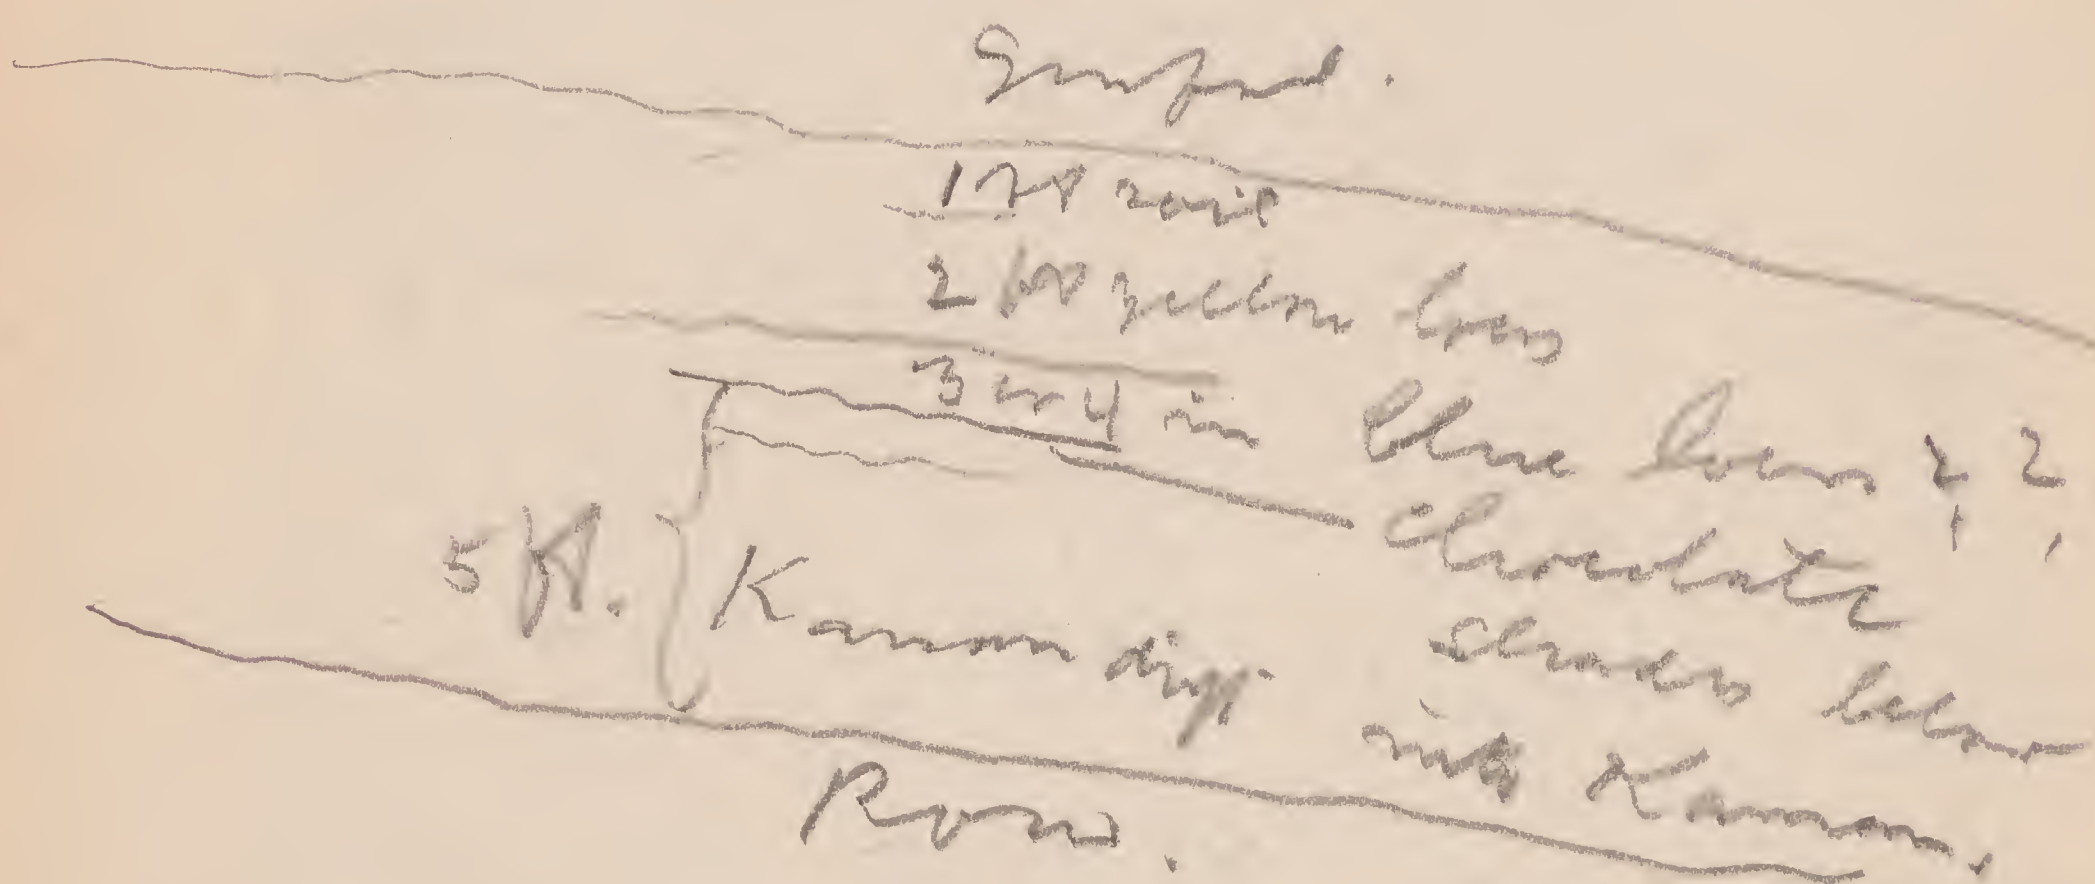 1 ft soil
2 ft yellow loess
3 or 4 in blue loess ? ?
chocolate
5 ft. Kansan drift shades below
into Kansan.
Row.